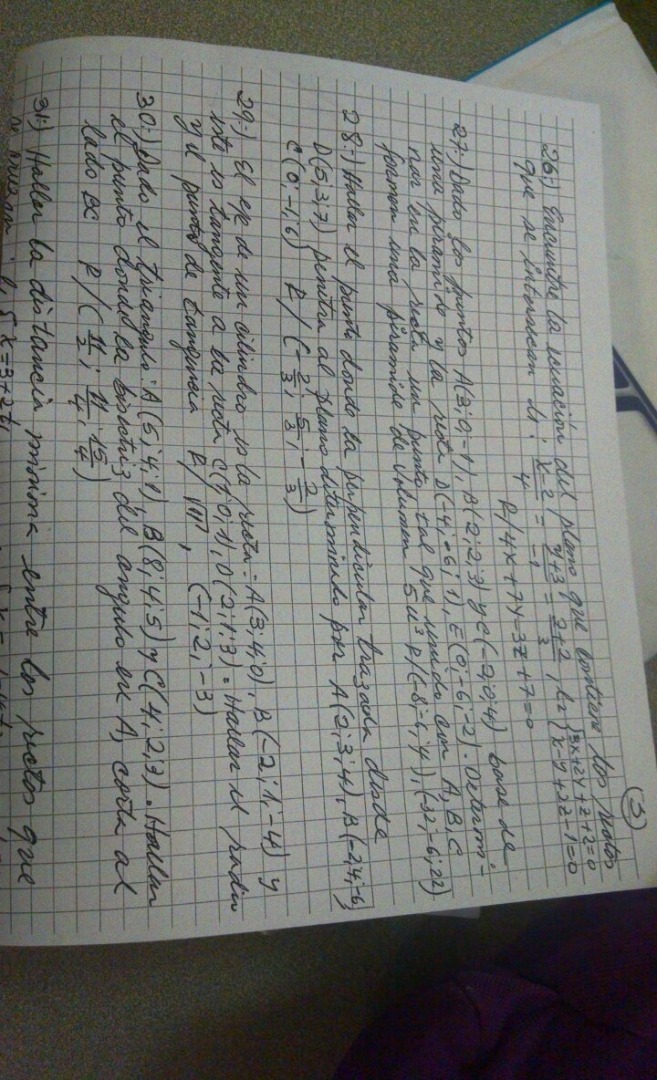 (3)
26:) Encuentre la ecuación del plano que contiene las rectas
que se intersecan L1: x-2/4 = y+3/-1 = z+2/3, L2 { 3x+2y+z+2=0
x-y+2z-1=0
R/ 4x+7y-3z+7=0
27:) Dado los puntos A(3;0;-1), B(2;2;3) y C(-2;0;4) base de
una pirámide y la recta D(-4;-6;1), E(0;-6;-2). Determi-
nar en la recta un punto tal que unido con A, B, C
forman una pirámide de volumen 5u³ R/(-8;-6;4),(-32;-6;22)
28:) Hallar el punto donde la perpendicular trazada desde
D(5;3;7) penetra al plano determinado por A(2;3;4), B(-2;4;-6)
C(0;-1;6) R/(-2/3; 5/3; -2/3)
29:) El eje de un cilindro es la recta: A(3;4;0), B(-2;1;-4) y
este es tangente a la recta C(1;0;1), D(2;1;3). Hallar el radio
y el punto de tangencia R/ , (-1;2;-3)
30:) Dado el triángulo: A(5;4;1), B(8;4;5) y C(4;2;3). Hallar
el punto donde la bisectriz del angulo en A, corta al
lado BC R/(-11/2; 11/4; 15/4)
31:) Hallar la distancia mínima entre las rectas que
x=3+2t